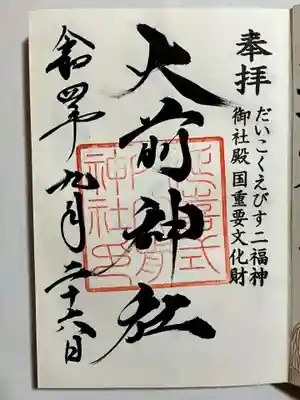 奉拝
だいこくえびす二福神
御社殿 国重要文化財
大前神社
令和四年九月二十六日
延喜式
神社印